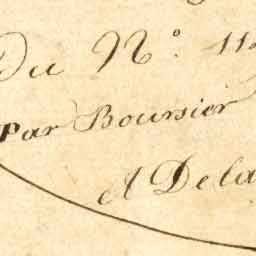 Du N°. 112
Par Boursier
A Dela